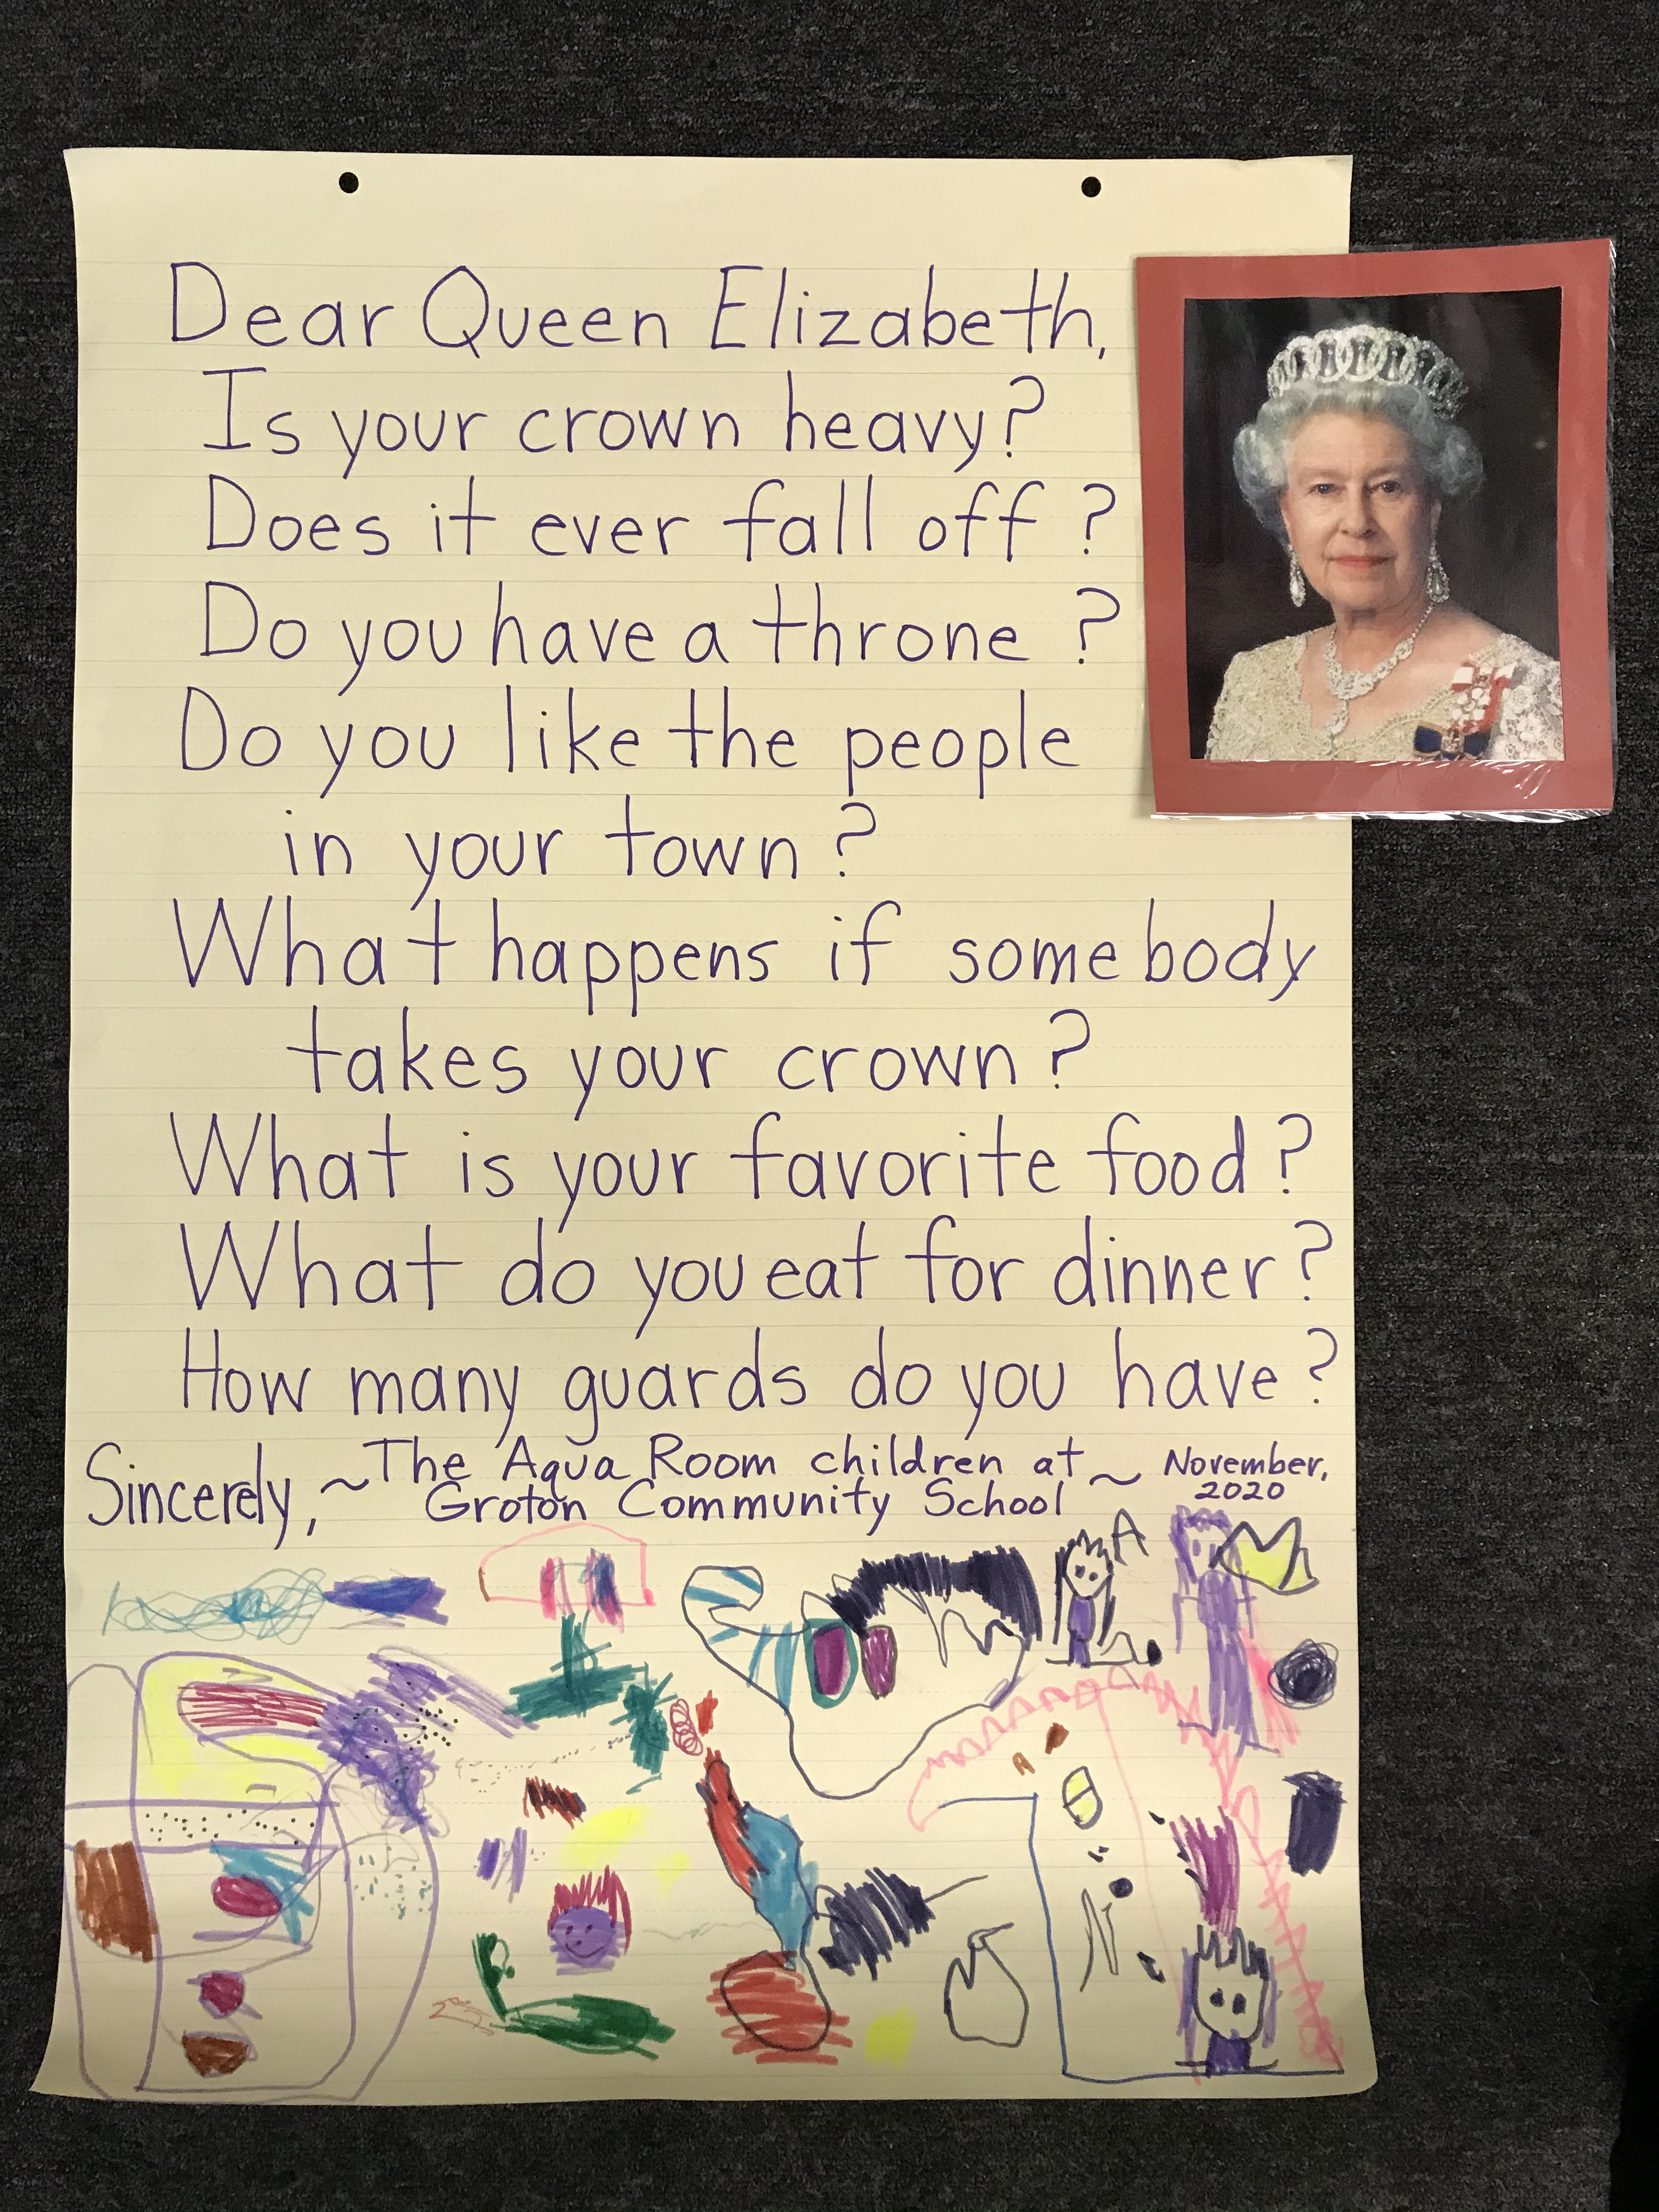 Dear Queen Elizabeth,
Is your crown heavy?
Does it ever fall off?
Do you have a throne?
Do you like the people
in your town?
What happens if somebody
takes your crown?
What is your favorite food?
What do you eat for dinner?
How many guards do you have?
Sincerely, ~The Aqua Room children at ~
Groton Community School
November,
2020
A